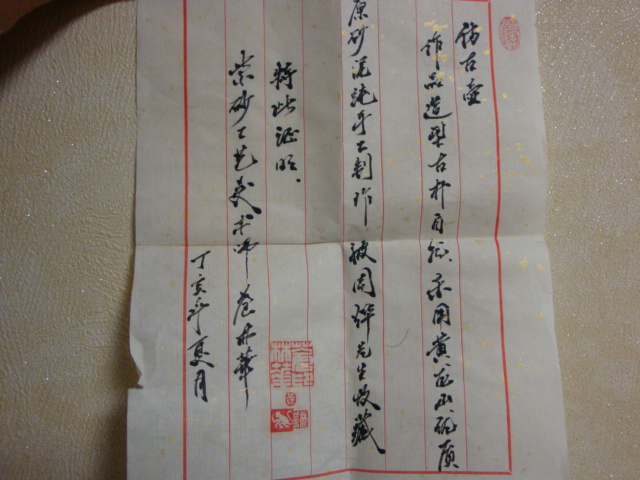 仿古壶
作品造型古朴自然采用黄龙山砿质
原砂泥纯手工制作被周烨先生收藏
特此证明、
紫砂工艺美术师范卅華
丁亥年夏月